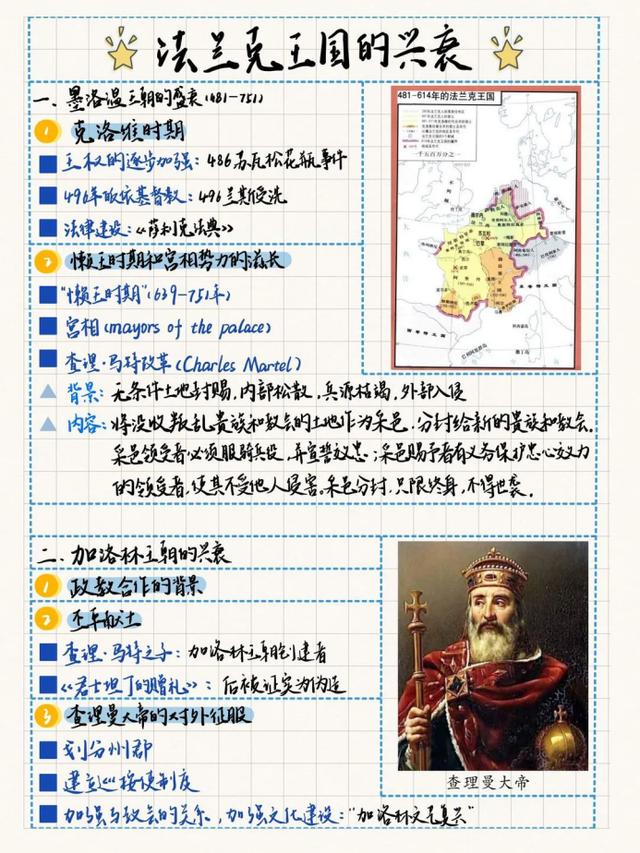 法兰克王国的兴衰
一、墨洛温王朝的盛衰(481-751)
1 克洛维时期
王权的逐步加强：486苏瓦松花瓶事件
496年皈依基督教：496兰斯受洗
法律建设：《萨利克法典》
2 懒王时期和宫相势力的滋长
"懒王时期"(639-751年)
宫相(mayors of the palace)
查理·马特改革(Charles Martel)
背景：无条件土地封赐，内部松散，兵源枯竭，外部入侵
内容：将没收叛乱贵族和教会的土地作为采邑，分封给新的贵族和教会。
采邑领受者必须服骑兵役，并宣誓效忠；采邑赐予者有义务保护忠心效力
的领受者，使其不受他人侵害。采邑分封，只限终身，不得世袭。
481-614年的法兰克王国
一千五百万分之一
二、加洛林王朝的兴衰
1 政教合作的背景
2 丕平献土
查理·马特之子：加洛林王朝创建者
《君士坦丁的赠礼》：后被证实为伪造
3 查理曼大帝的对外征服
划分州郡
建立巡按使制度
加强与教会的关系，加强文化建设："加洛林文艺复兴"
查理曼大帝